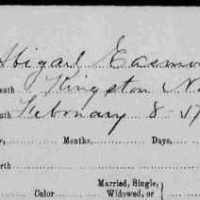 Abigail Eastm
Kingston N.
February 8-
Months. Days.
Color Married, Single,
Widowed, or